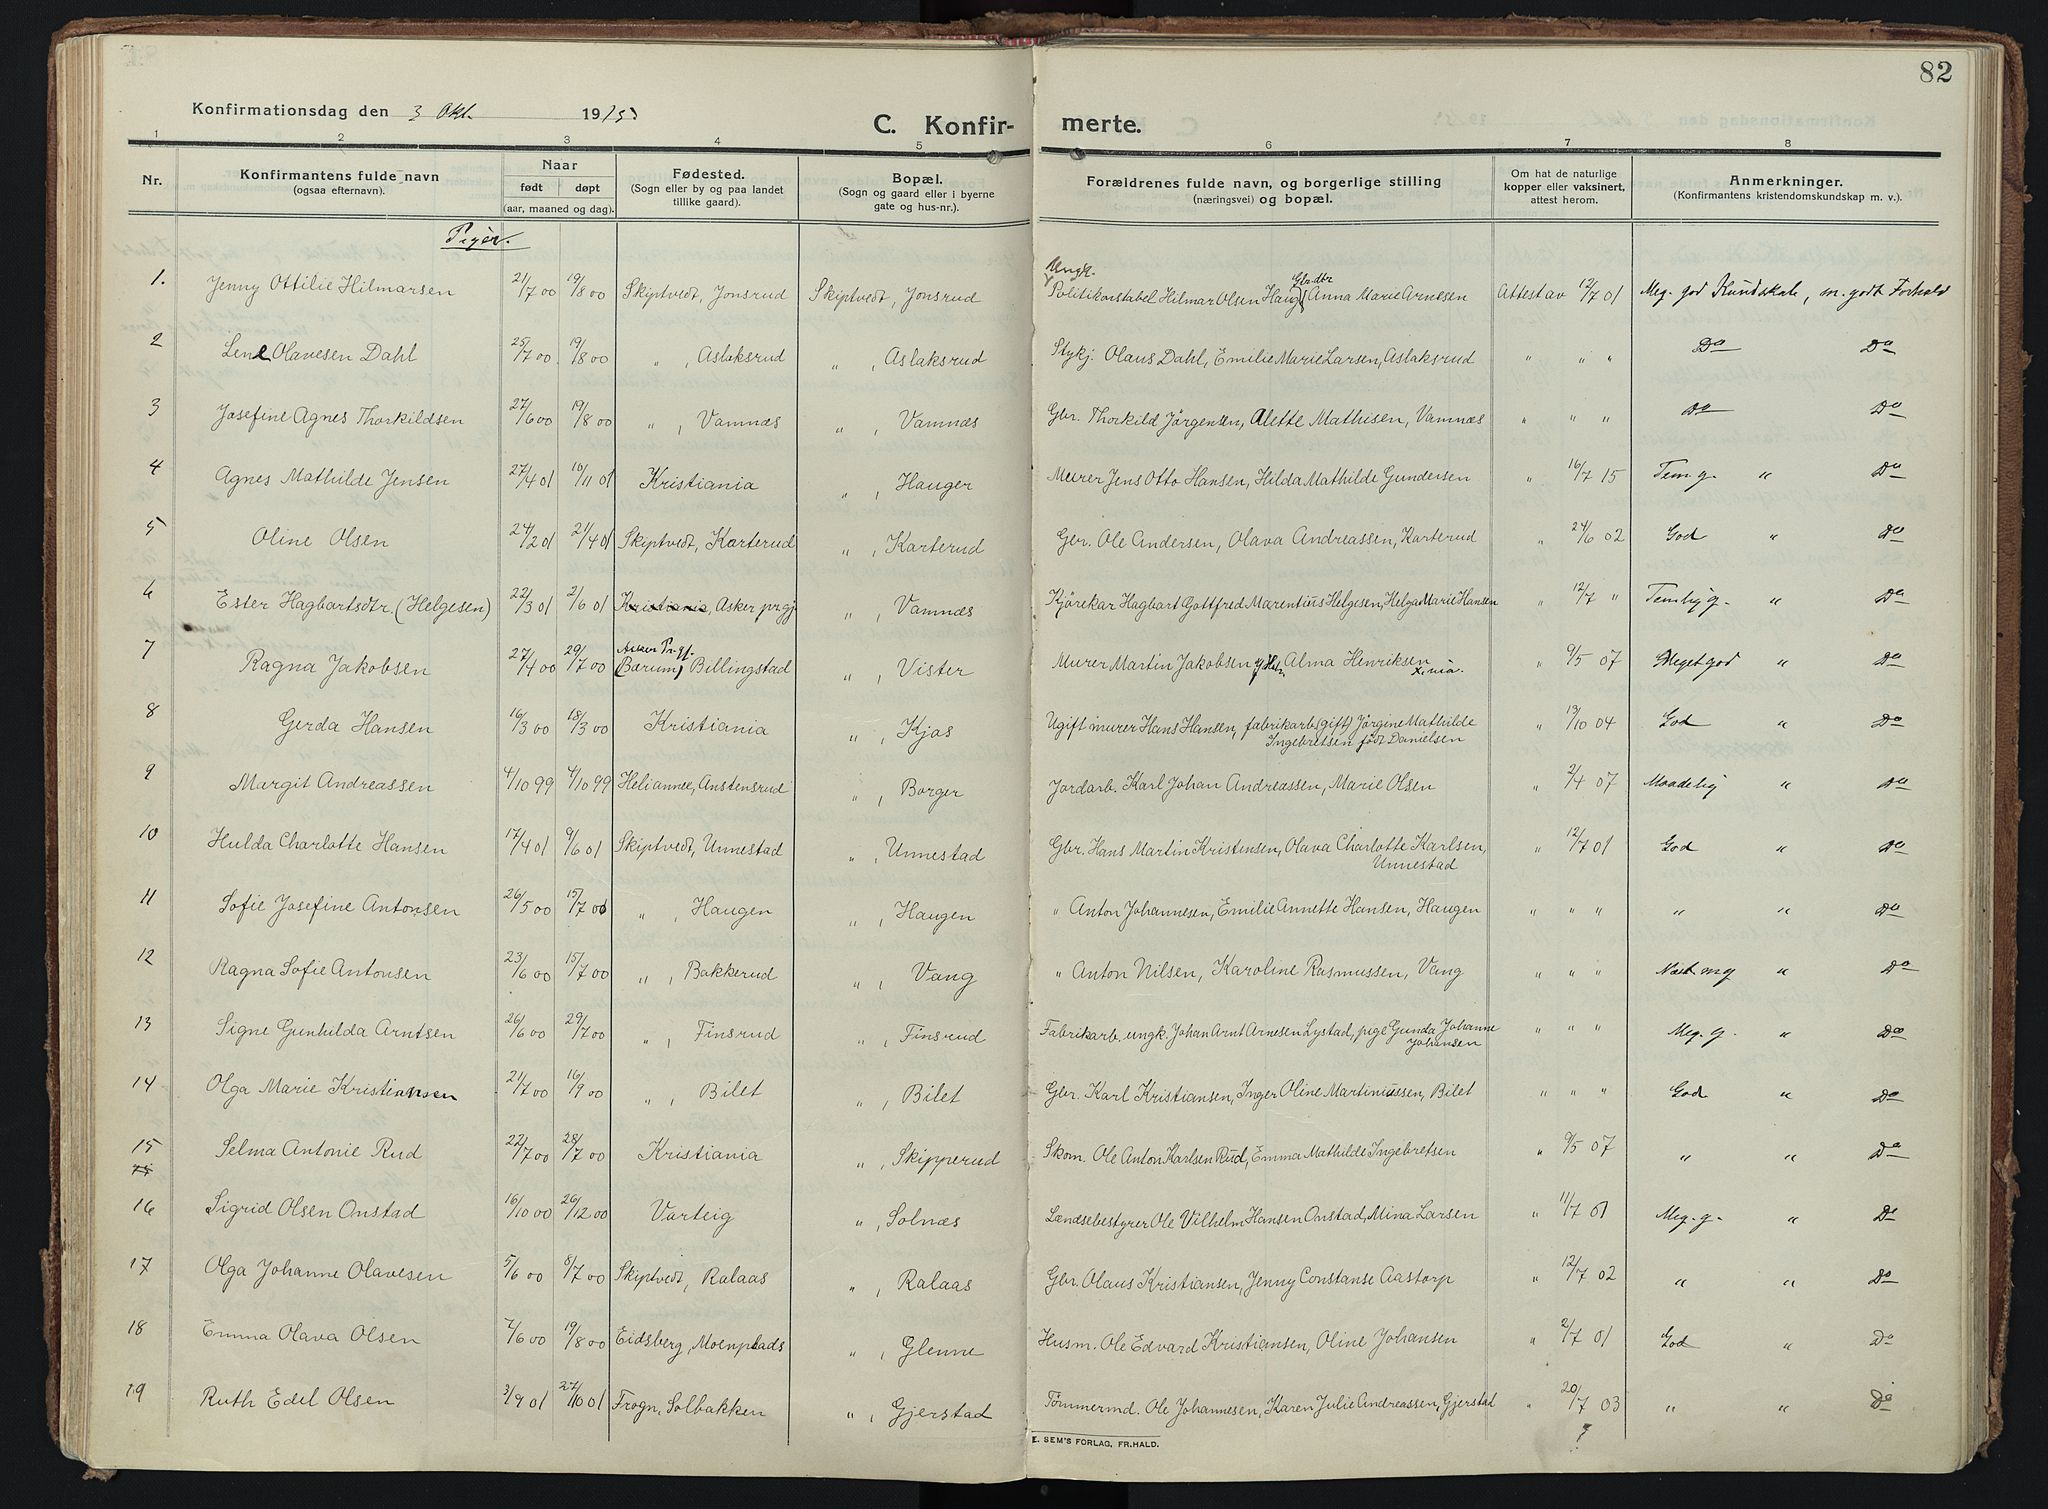 82
Konfirmationsdag den 3 Okt. 1915
C. Konfir- merte.
1 2 3 4 5 6 7 8
Nr. Konfirmantens fulde navn (ogsaa efternavn). Naar født døpt (aar, maaned og dag). Fødested. (Sogn eller by og paa landet tillike gaard). Bopæl. (Sogn og gaard eller i byerne gate og hus-nr.). Forældrenes fulde navn, og borgerlige stilling (næringsvei) og bopæl. Om hat de naturlige kopper eller vaksinert, attest herom. Anmerkninger. (Konfirmantens kristendomskundskap m. v.).
Piger.
Ungk. Gbrdtr
1. Jenny Ottilie Hilmarsen 21/7 00 19/8 00 Skiptvedt, Jonsrud Skiptvedt, Jonsrud Politikonstabel Hilmar Olsen Haug, Anna Marie Arnesen Attest av 12/7 01 Meg. god Kundskab, m. godt Forhold
2 Lene Olavesen Dahl 25/7 00 19/8 00 " , Aslaksrud " , Aslaksrud Stykj. Olaus Dahl, Emilie Marie Larsen, Aslaksrud " " " Do Do
3 Josefine Agnes Thorkildsen 27/6 00 19/8 00 " , Vamnæs " , Vamnæs Gbr. Thorkild Jörgensen, Alette Mathisen, Vamnæs " " " Do Do
4 Agnes Mathilde Jensen 27/4 01 10/11 01 Kristiania " , Hauger Murer Jens Otto Hansen, Hilda Mathilde Gundersen " 16/7 15 Tem. g. " Do
5 Oline Olsen 24/2 01 21/4 01 Skiptvedt, Karterud " , Karterud Gbr. Ole Andersen, Olava Andreassen, Karterud " 24/6 02 God " Do
6 Ester Hagbartsdtr. (Helgesen) 22/3 01 2/6 01 Kristiania, Asker prgj " , Vamnæs Kjörekar Hagbart Gottfred Marentius Helgesen, Helga Marie Hansen " 12/7 " Temlig g. " Do
Asker Pr. gj.
7 Ragna Jakobsen 27/4 00 29/7 00 (Bærum) Billingstad " , Vister Murer Martin Jakobsen Alma Henriksen " 9/5 07 Meget god " Do
X.nia.
8 Gerda Hansen 16/3 00 18/3 00 Kristiania " , Kjos Ugift murer Hans Hansen, fabrikarb. (gift) Jörgine Mathilde " 13/10 04 God " Do
Ingebretsen født Danielsen
9 Margit Andreassen 4/10 99 4/10 99 Anstensrud " , Borger Jordarb. Karl Johan Andreassen, Marie Olsen " 2/4 07 Maadelig " Do
10 Hulda Charlotte Hansen 17/4 01 9/6 01 Skiptvedt, Unnestad " , Unnestad Gbr. Hans Martin Kristensen, Olava Charlotte Karlsen, " 12/7 01 God " Do
Unnestad
11 Sofie Josefine Antonsen 26/5 00 15/7 00 " , Haugen " , Haugen " Anton Johannesen, Emilie Annette Hansen, Haugen " " " " " Do
12 Ragna Sofie Antonsen 23/6 00 15/7 00 " , Bakkerud " , Vang " Anton Nilsen, Karoline Rasmussen, Vang " " " Næst m g " Do
13 Signe Gunhilda Arntsen 26/6 00 29/7 00 " , Finsrud " , Finsrud Fabrikarb. ungk. Johan Arnt Arnesen Lystad, pige Gunda Johanne " " " Meg. g. " Do
Johansen
14 Olga Marie Kristiansen 21/7 00 16/9 00 " , Bilet " , Bilet Gbr. Karl Kristiansen, Inger Oline Martiniussen, Bilet " " " God " Do
15 Selma Antonie Rud 22/7 00 28/7 00 Kristiania " , Skipperud Skom. Ole Anton Karlsen Rud, Emma Mathilde Ingebretsen " 9/5 07 " " Do
16 Sigrid Olsen Onstad 16/10 00 26/12 00 Varteig " , Solnæs Lændsebestyrer Ole Vilhelm Hansen Onstad, Mina Larsen " 11/7 01 Meg. g. " Do
17 Olga Johanne Olavesen 5/6 00 8/7 00 Skiptvedt, Ralaas " , Ralaas Gbr. Olaus Kristiansen, Jenny Constanse Aastorp " 12/7 02 " " Do
18 Emma Olava Olsen 7/6 00 19/8 00 Eidsberg, Moenplads " , Glenne Husm. Ole Edvard Kristiansen, Oline Johansen " 2/7 01 God " Do
19 Ruth Edel Olsen 3/9 01 27/10 01 Frogn, Solbakken " , Gjerstad Tømmermd. Ole Johannesen, Karen Julie Andreassen, Gjerstad " 20/7 03 " " Do
?
E. SEM'S FORLAG, FR.HALD.